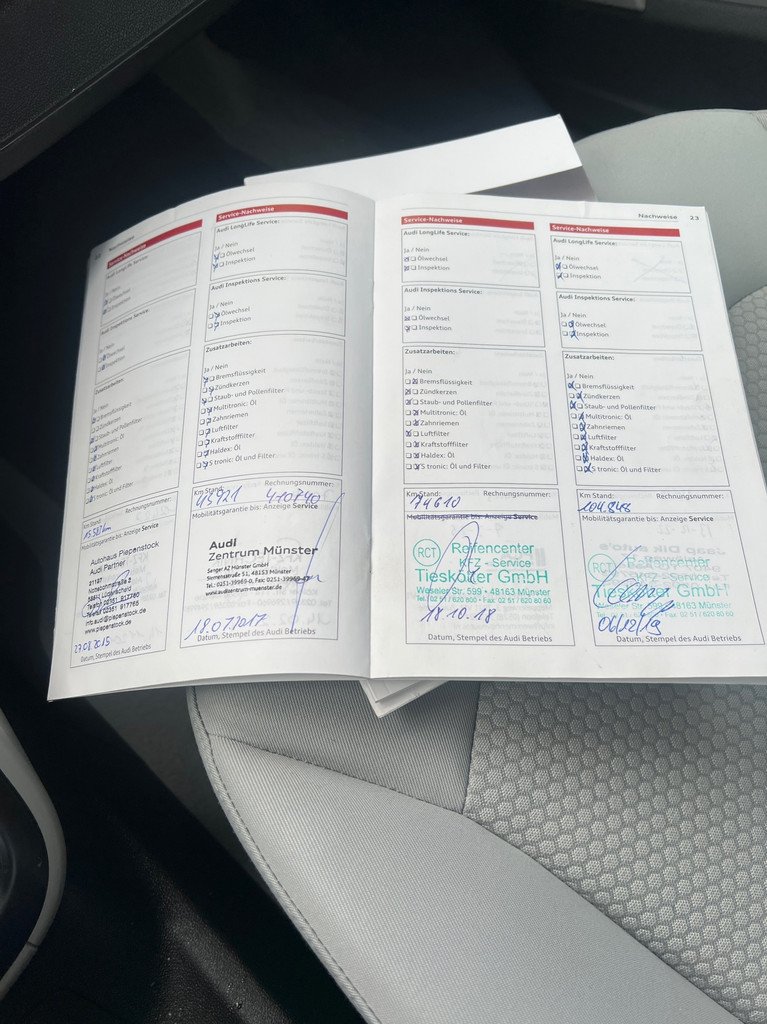 Nachweise
Service-Nachweise
Audi LongLife Service:
Ja / Nein
Ölwechsel
Inspektion
Audi Inspektions Service:
Ja / Nein
Ölwechsel
Inspektion
Zusatzarbeiten:
Ja / Nein
Bremsflüssigkeit
Zündkerzen
Staub- und Pollenfilter
Multitronic: Öl
Zahnriemen
Luftfilter
Kraftstofffilter
Haldex: Öl
S tronic: Öl und Filter
Km Stand:
Rechnungsnummer:
Mobilitätsgarantie bis: Anzeige Service
Autohaus Piepenstock
Audi Partner
info.audi@piepenstock.de
www.piepenstock.de
27.08.2015
Datum, Stempel des Audi Betriebs
Service-Nachweise
Audi LongLife Service:
Ja / Nein
Ölwechsel
Inspektion
Audi Inspektions Service:
Ja / Nein
Ölwechsel
Inspektion
Zusatzarbeiten:
Ja / Nein
Bremsflüssigkeit
Zündkerzen
Staub- und Pollenfilter
Multitronic: Öl
Zahnriemen
Luftfilter
Kraftstofffilter
Haldex: Öl
S tronic: Öl und Filter
Km Stand: Rechnungsnummer:
45921 410740
Mobilitätsgarantie bis: Anzeige Service
Audi
Zentrum Münster
Senger AZ Münster GmbH
Siemensstraße 51, 48153 Münster
www.audizentrum-muenster.de
18.07.2017
Datum, Stempel des Audi Betriebs
Service-Nachweise
Audi LongLife Service:
Ja / Nein
Ölwechsel
Inspektion
Audi Inspektions Service:
Ja / Nein
Ölwechsel
Inspektion
Zusatzarbeiten:
Ja / Nein
Bremsflüssigkeit
Zündkerzen
Staub- und Pollenfilter
Multitronic: Öl
Zahnriemen
Luftfilter
Kraftstofffilter
Haldex: Öl
S tronic: Öl und Filter
Km Stand: Rechnungsnummer:
74610
Mobilitätsgarantie bis: Anzeige Service
RCT Reifencenter
KFZ - Service
Tieskötter GmbH
Weseler Str. 599 • 48163 Münster
Tel. 02 51 / 620 800 • Fax: 02 51 / 620 80 60
18.10.18
Datum, Stempel des Audi Betriebs
Nachweise 23
Service-Nachweise
Audi LongLife Service:
Ja / Nein
Ölwechsel
Inspektion
Audi Inspektions Service:
Ja / Nein
Ölwechsel
Inspektion
Zusatzarbeiten:
Ja / Nein
Bremsflüssigkeit
Zündkerzen
Staub- und Pollenfilter
Multitronic: Öl
Zahnriemen
Luftfilter
Kraftstofffilter
Haldex: Öl
S tronic: Öl und Filter
Km Stand: Rechnungsnummer:
104.848
Mobilitätsgarantie bis: Anzeige Service
RCT Reifencenter
KFZ - Service
GmbH
Weseler Str. 599 • 48163 Münster
Fax: 02 51 / 620 80 60
06/12/19
Datum, Stempel des Audi Betriebs